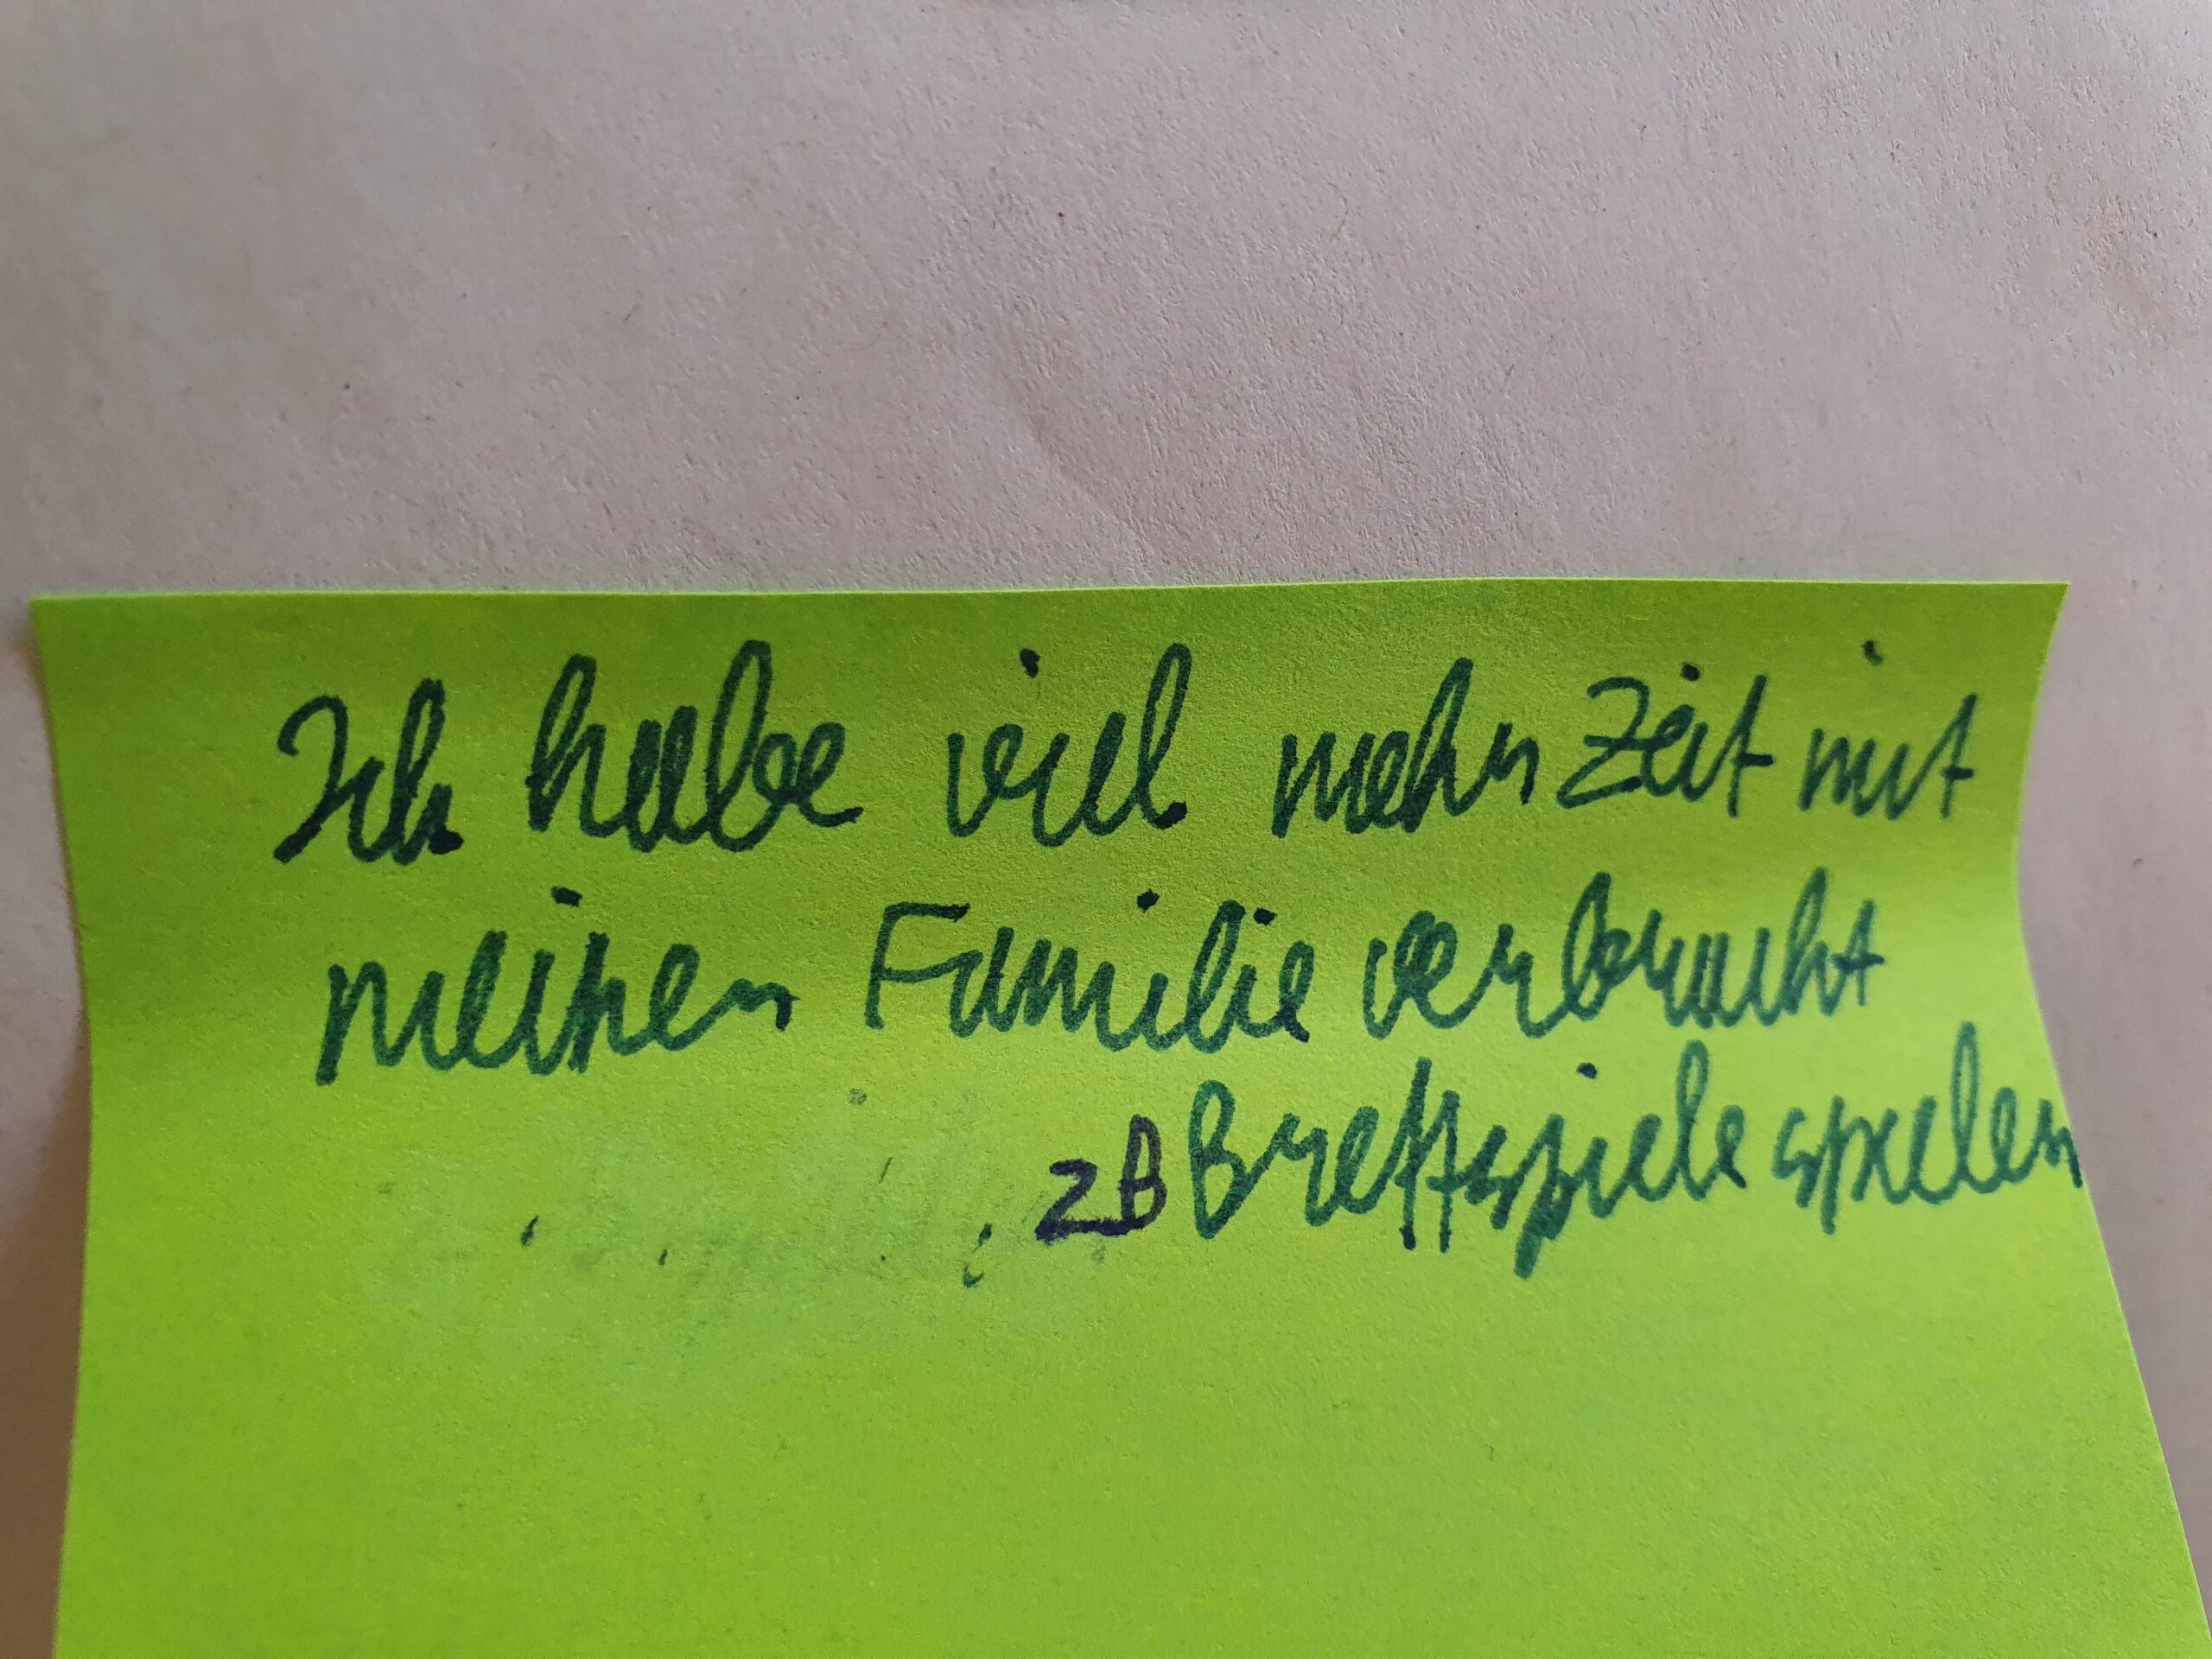 Ich habe viel mehr Zeit mit
meiner Familie verbracht
zB Brettspiele spielen